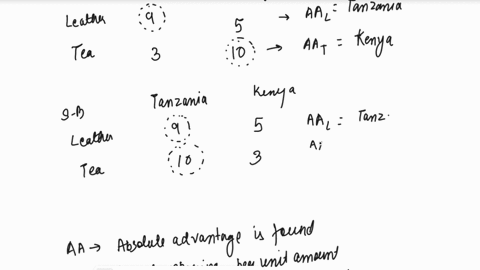 Leather 9 5 → AA_L = Tanzania
Tea 3 10 → AA_T = Kenya
Tanzania Kenya
9-B
Leather 9 5 AA_L = Tanz.
Tea 10 3 Ai
AA → Absolute advantage is found
per unit amount